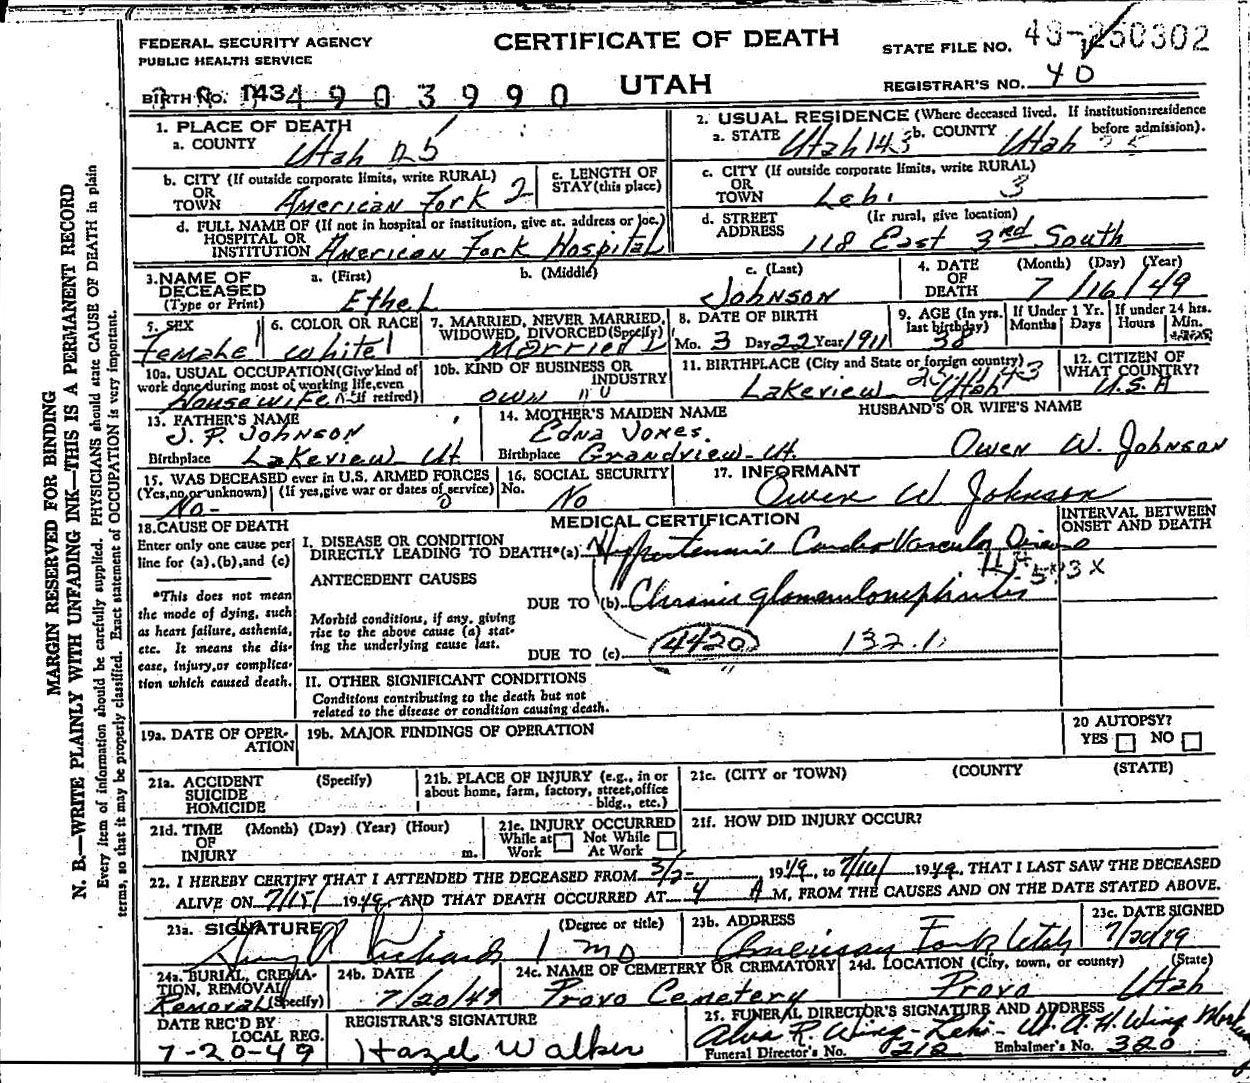 FEDERAL SECURITY AGENCY
PUBLIC HEALTH SERVICE
CERTIFICATE OF DEATH
UTAH
STATE FILE NO. 49-250302
REGISTRAR'S NO. 40
BIRTH NO. 143 4903990
MARGIN RESERVED FOR BINDING
N. B.—WRITE PLAINLY WITH UNFADING INK—THIS IS A PERMANENT RECORD
Every item of information should be carefully supplied. PHYSICIANS should state CAUSE OF DEATH in plain
terms, so that it may be properly classified. Exact statement of OCCUPATION is very important.
1. PLACE OF DEATH
a. COUNTY Utah 25
b. CITY (If outside corporate limits, write RURAL)
OR
TOWN American Fork 2
c. LENGTH OF
STAY (this place)
d. FULL NAME OF (If not in hospital or institution, give st. address or loc.)
HOSPITAL OR
INSTITUTION American Fork Hospital
2. USUAL RESIDENCE (Where deceased lived. If institution: residence
before admission).
a. STATE Utah 143 b. COUNTY Utah 25
c. CITY (If outside corporate limits, write RURAL)
OR
TOWN Lehi 3
d. STREET (If rural, give location)
ADDRESS 118 East 3rd South
3. NAME OF
DECEASED
(Type or Print)
a. (First) b. (Middle) c. (Last)
Ethel Johnson
4. DATE (Month) (Day) (Year)
OF
DEATH 7/16/49
5. SEX
Female
6. COLOR OR RACE
White
7. MARRIED, NEVER MARRIED,
WIDOWED, DIVORCED (Specify)
Married
8. DATE OF BIRTH
Mo. 3 Day 22 Year 1911
9. AGE (In yrs.
last birthday)
38
If Under 1 Yr.
Months Days
If under 24 hrs.
Hours Min.
10a. USUAL OCCUPATION (Give kind of
work done during most of working life, even
if retired)
Housewife
10b. KIND OF BUSINESS OR
INDUSTRY
Own
11. BIRTHPLACE (City and State or foreign country)
Lakeview Utah
12. CITIZEN OF
WHAT COUNTRY?
U.S.A
13. FATHER'S NAME
J. P. Johnson
Birthplace Lakeview Ut.
14. MOTHER'S MAIDEN NAME
Edna Jones.
Birthplace Grandview Ut.
HUSBAND'S OR WIFE'S NAME
Owen W. Johnson
15. WAS DECEASED ever in U.S. ARMED FORCES
(Yes, no, or unknown) (If yes, give war or dates of service)
No- 0
16. SOCIAL SECURITY
No. No
17. INFORMANT
Owen W Johnson
18. CAUSE OF DEATH
Enter only one cause per
line for (a), (b), and (c)
*This does not mean
the mode of dying, such
as heart failure, asthenia,
etc. It means the dis-
ease, injury, or complica-
tion which caused death.
MEDICAL CERTIFICATION
INTERVAL BETWEEN
ONSET AND DEATH
I. DISEASE OR CONDITION
DIRECTLY LEADING TO DEATH*(a) Hypertensive Cardio Vascular Disease
ANTECEDENT CAUSES
DUE TO (b) Chronic glomerulonephritis
Morbid conditions, if any, giving
rise to the above cause (a) stat-
ing the underlying cause last.
DUE TO (c) 4420 132.1
II. OTHER SIGNIFICANT CONDITIONS
Conditions contributing to the death but not
related to the disease or condition causing death.
19a. DATE OF OPER-
ATION
19b. MAJOR FINDINGS OF OPERATION
20 AUTOPSY?
YES NO
21a. ACCIDENT (Specify)
SUICIDE
HOMICIDE
21b. PLACE OF INJURY (e.g., in or
about home, farm, factory, street, office
bldg., etc.)
21c. (CITY or TOWN) (COUNTY (STATE)
21d. TIME (Month) (Day) (Year) (Hour)
OF
INJURY m.
21e. INJURY OCCURRED
While at Not While
Work At Work
21f. HOW DID INJURY OCCUR?
22. I HEREBY CERTIFY THAT I ATTENDED THE DECEASED FROM 3/2- 1949, to 7/16/ 1949, THAT I LAST SAW THE DECEASED
ALIVE ON 7/15/ 1949, AND THAT DEATH OCCURRED AT 4 A M, FROM THE CAUSES AND ON THE DATE STATED ABOVE.
23a. SIGNATURE (Degree or title)
Richards MD
23b. ADDRESS
American Fork Utah
23c. DATE SIGNED
7/20/49
24a. BURIAL, CREMA-
TION, REMOVAL
(Specify)
Removal
24b. DATE
7/20/49
24c. NAME OF CEMETERY OR CREMATORY
Provo Cemetery
24d. LOCATION (City, town, or county) (State)
Provo Utah
DATE REC'D BY
LOCAL REG.
7-20-49
REGISTRAR'S SIGNATURE
Hazel Walker
25. FUNERAL DIRECTOR'S SIGNATURE AND ADDRESS
Alva R. Wing-Lehi-Ut. A. H. Wing
Funeral Director's No. 218 Embalmer's No. 380